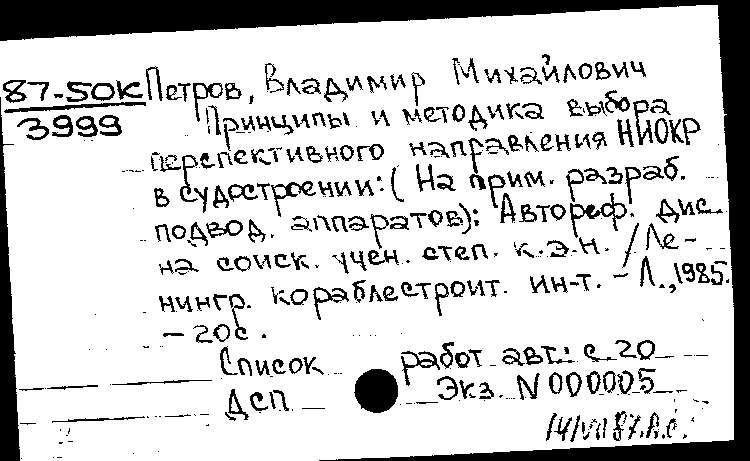 87-50К Петров, Владимир Михайлович
3999 Принципы и методика выбора
перспективного направления НИОКР
в судостроении: (На прим. разраб.
подвод. аппаратов): Автореф. дис.
на соиск. учен. степ. к.э.н. / Ле-
нингр. кораблестроит. ин-т. – Л., 1985.
– 20с.
Список работ авт.: с. 20
ДСП Экз. N 000005
14/VII 87.